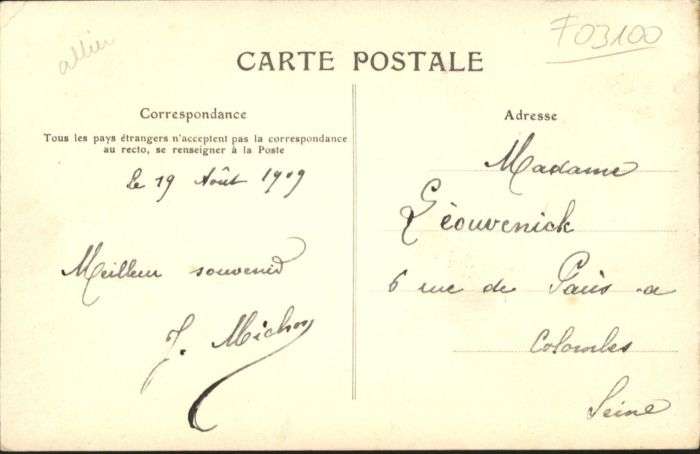 allier
F03100
CARTE POSTALE
Correspondance
Tous les pays étrangers n'acceptent pas la correspondance
au recto, se renseigner à la Poste
le 19 Août 1909
Meilleur souvenir
J. Michon
Adresse
Madame
Géouvenick
6 rue de Paris a
Colombes
Seine